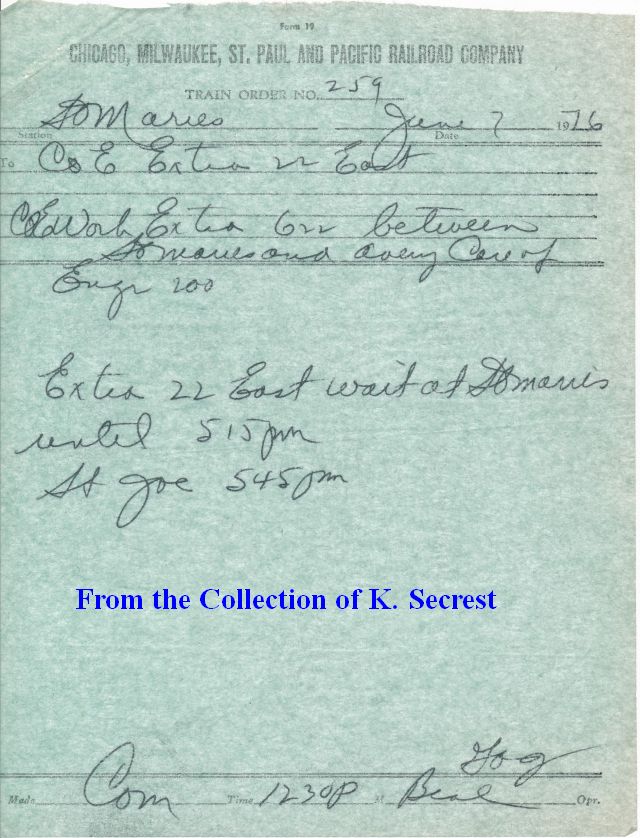 Form 19
CHICAGO, MILWAUKEE, ST. PAUL AND PACIFIC RAILROAD COMPANY
TRAIN ORDER NO. 259
St Maries June 7 1976
Station Date
To C&E Extra 22 East
C&E Work Extra 622 between
St maries and avery Care of
Engr 200
Extra 22 East wait at St maries
until 515pm
St Joe 545pm
From the Collection of K. Secrest
Made Com Time 1230P M Beal Opr.